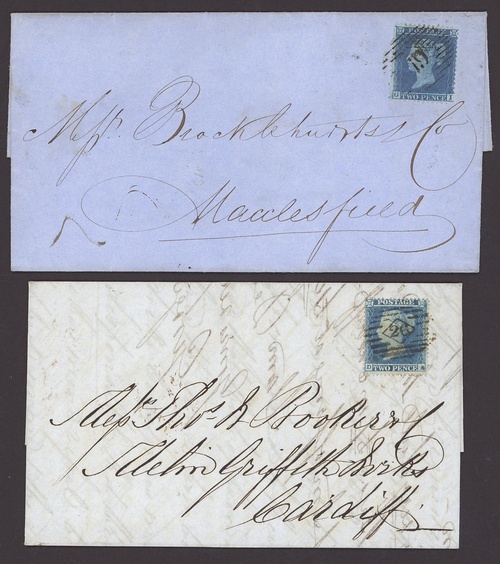 POSTAGE
TWO PENCE
Messrs. Brocklehursts & Co
Macclesfield
POSTAGE
TWO PENCE
Messrs. Thos. W. Booker & Co
Melin Griffith Works
Cardiff